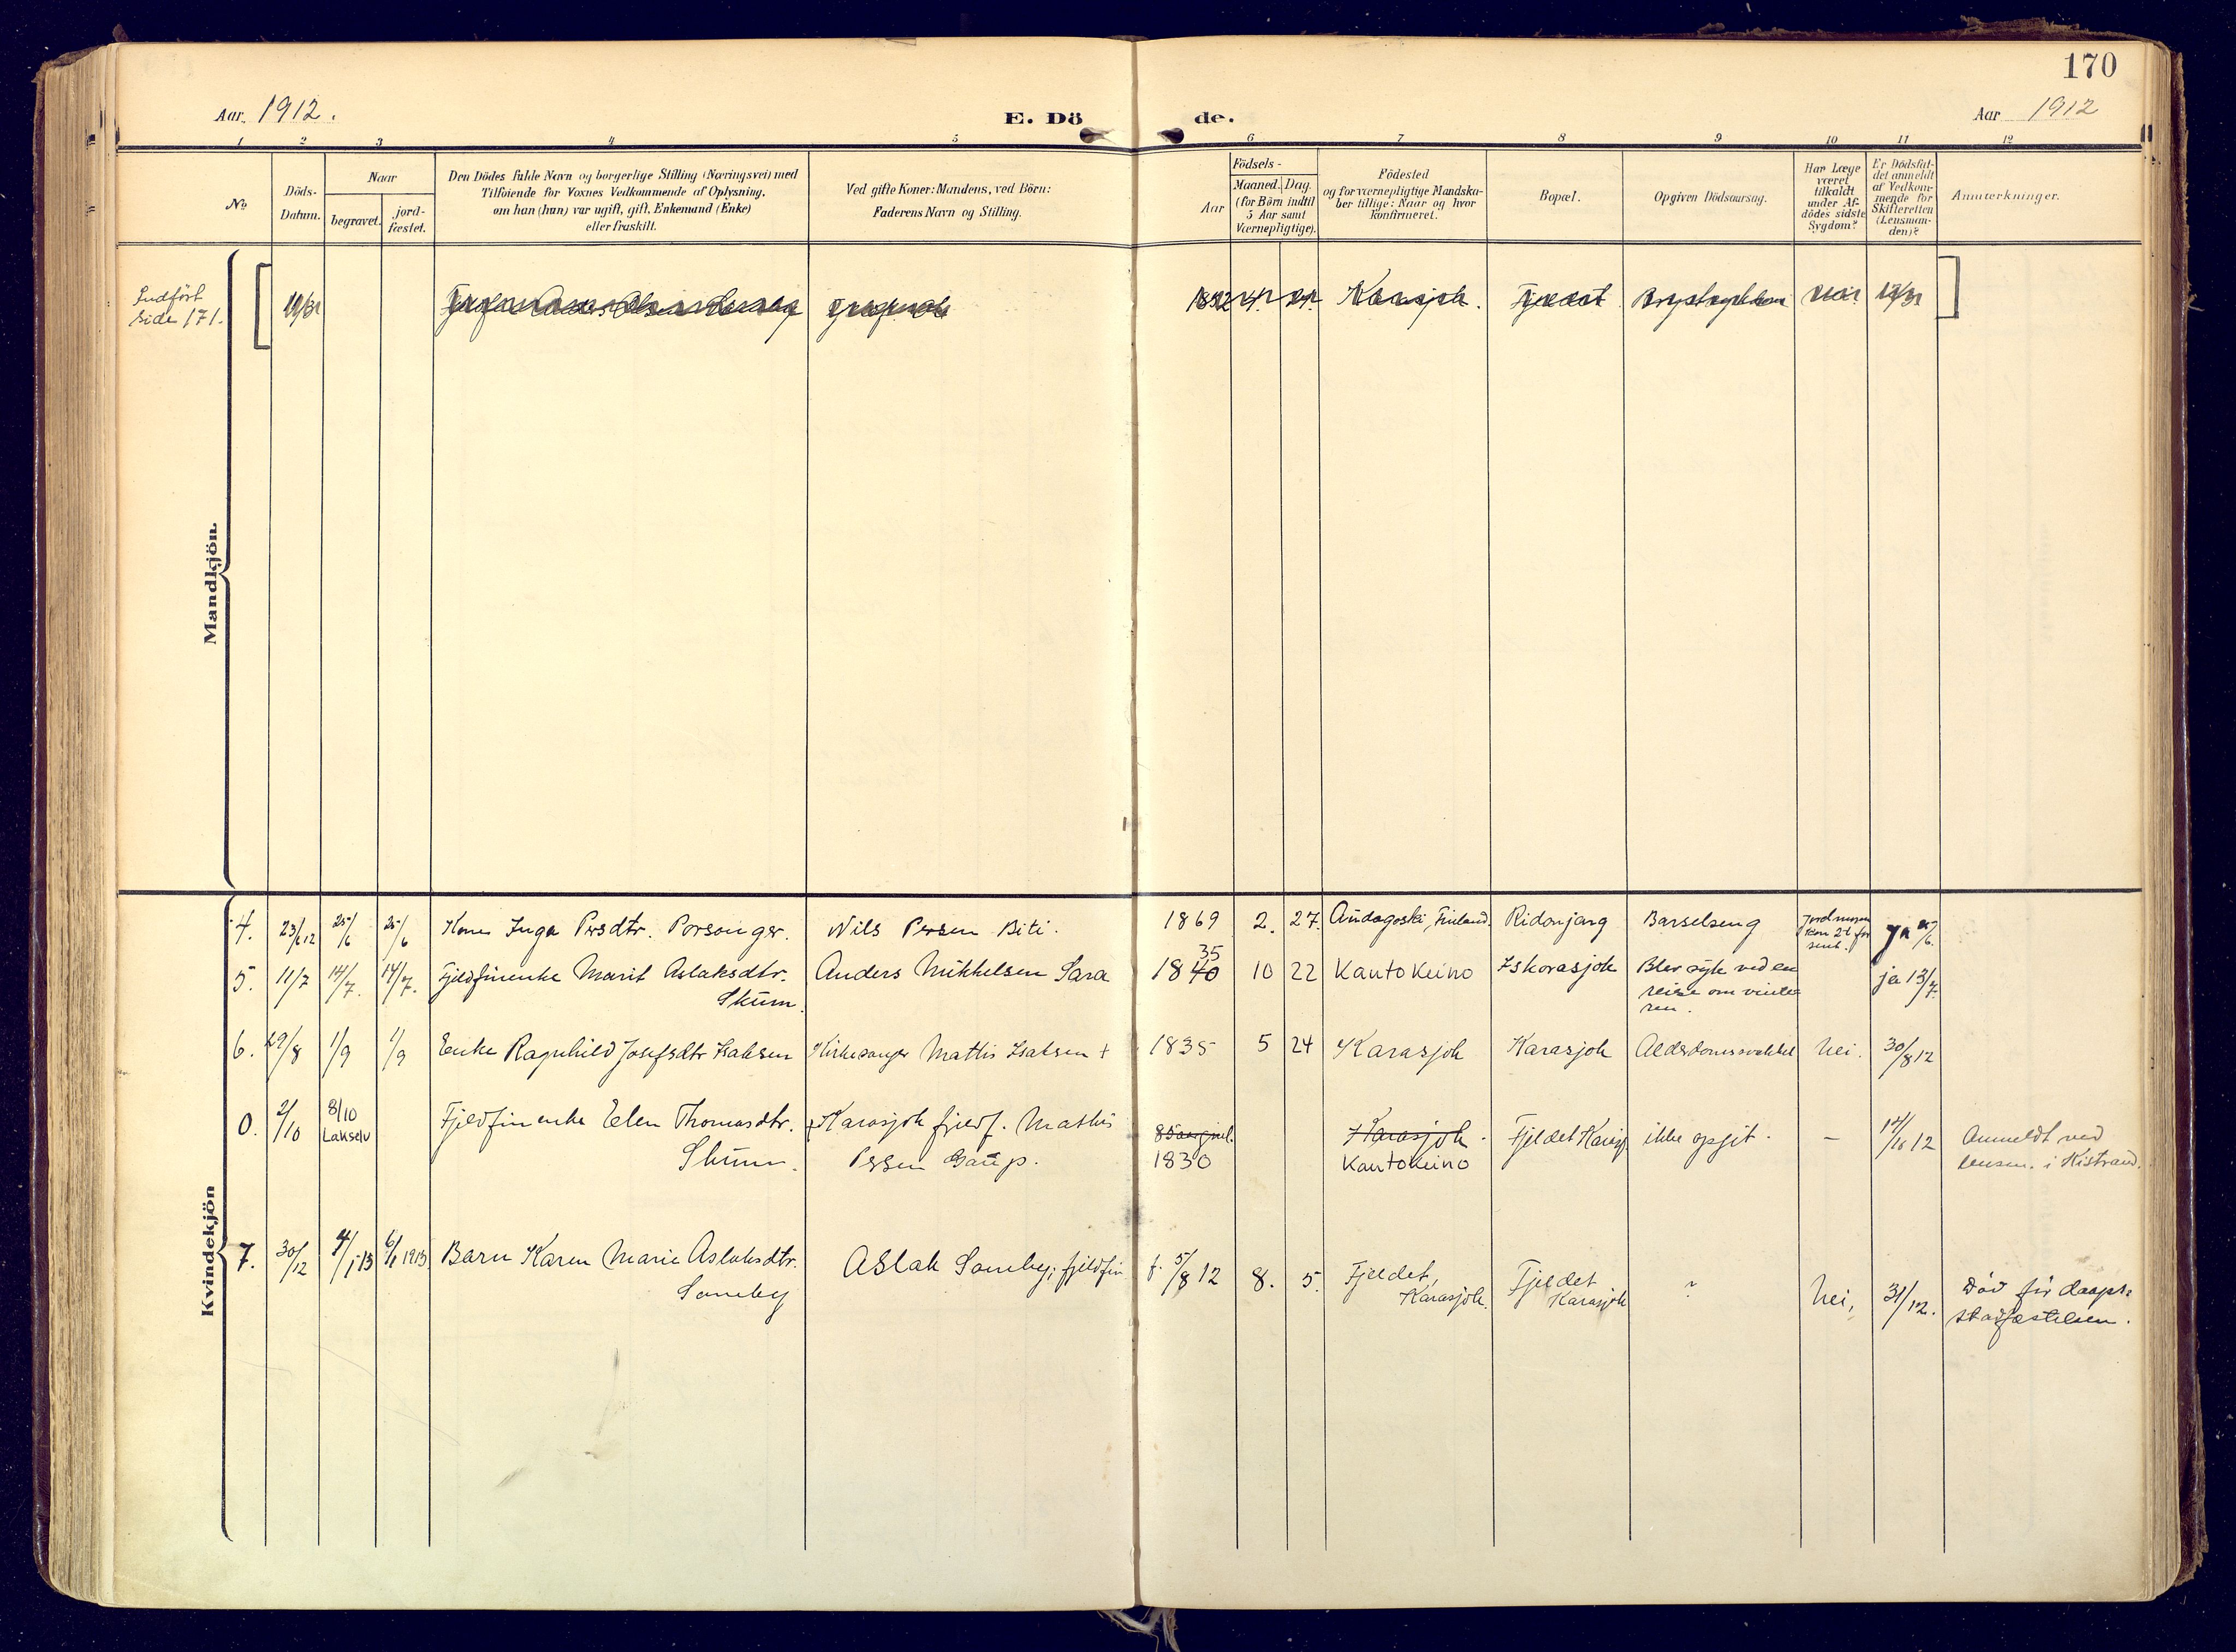 170
Aar. 1912.
E. Dö
de.
Aar 1912
1 2 3 4 5 6 7 8 9 10 11 12
No
Döds-
Datum.
Naar
begravet.
jord-
fæstet.
Den Dödes fulde Navn og borgerlige Stilling (Næringsvei) med
Tilföiende for Voxnes Vedkommende af Oplysning,
om han (hun) var ugift, gift, Enkemand (Enke)
eller fraskilt.
Ved gifte Koner: Mandens, ved Börn:
Faderens Navn og Stilling.
Födsels-
Aar
Maaned. Dag.
(for Börn indtil
5 Aar samt
Værnepligtige).
Födested
og for værnepligtige Mandska-
ber tillige: Naar og hvor
konfirmeret.
Bopæl.
Opgiven Dödsaarsag.
Har Læge
været
tilkaldt
under Af-
dödes sidste
Sygdom?
Er Dödsfal-
det anmeldt
af Vedkom-
mende for
Skifteretten
(Lensman-
den)?
Anmerkninger.
Indfört
side 171.
Karasjok.
Mandkjön.
4. 23/6 12 25/6 25/6 Kone Inga Persdtr. Porsanger. Nils Persen Biti. 1869 2. 27. Finland. Ridonjarg Barselseng ja
5. 11/7 14/7. 14/7. Fjeldfinenke Marit Aslaksdtr. Anders Mikkelsen Sara 1840 10 22 Kautokeino Iskorasjok Blev syk ved en ja 13/7.
Skum. 35
reise om vinte
ren.
6. 29/8 1/9 1/9 Enke Ragnhild Josefsdtr Isaksen Kirkesanger Mattis Isaksen + 1835 5 24 Karasjok Karasjok Alderdomssvakhet Nei. 30/8 12
0. 2/10 8/10 Fjeldfinenke Elen Thomasdtr. Karasjok fjeldf. Mathis Karasjok. Fjeldet ikke opgit. — 12 Anmeldt ved
Lakselv Skum. Persen Gaup. 1830 Kautokeino lensm. i Kistrand.
Kvindekjön
7. 30/12 4/1 13 6/1 1913 Barn Karen Marie Aslaksdtr. Aslak Somby, fjeldfin f. 5/8 12 8. 5. Fjeldet, Fjeldet ? Nei, 31/12. Död för daaps-
Somby Karasjok. Karasjok stadfæstelsen.